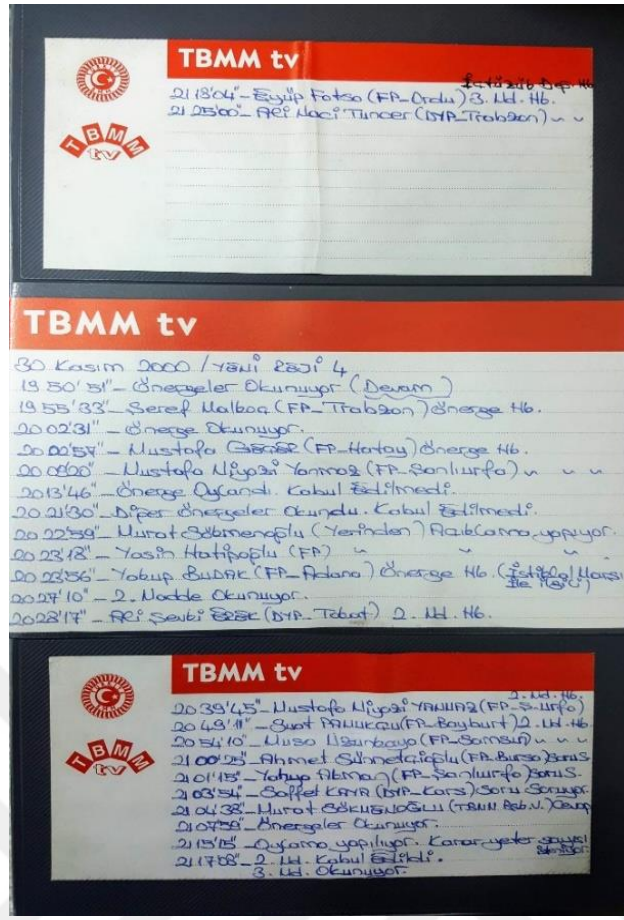 TBMM tv
21 18'04"_ Eyüp Fatsa (FP_Ordu) 3. Md. Hb.
21 25'00"_ Ali Naci Tuncer (DYP_Trabzon) " "
TBMM
tv
TBMM tv
30 Kasım 2000 / Yeni Reji 4
19 50'51"_ Önergeler Okunuyor (Devam)
19 55'33"_ Şeref Malkoç (FP_Trabzon) Önerge Hb.
20 02'31"_ Önerge Okunuyor.
_ Mustafa (FP_Hatay) Önerge Hb.
_ Mustafa Niyazi Yanmaz (FP_Şanlıurfa) " " "
20 13'46"_ Önerge Oylandı. Kabul Edilmedi.
20 21'30"_ Diğer Önergeler Okundu. Kabul Edilmedi.
20 22'59"_ Murat Sökmenoğlu (Yerinden) Açıklama yapıyor.
20 23'18"_ Yasin Hatipoğlu (FP) " " "
20 23'56"_ Yakup BUDAK (FP_Adana) Önerge Hb. (İstiklal Marşı
ile ilgili)
20 27'10"_ 2. Madde Okunuyor.
20 28'17"_ Ali Şevki EREK (DYP_Tokat) 2. Md. Hb.
TBMM tv
2. Md. Hb.
20 39'45"_ Mustafa Niyazi YANMAZ (FP_Ş.Urfa)
20 49'11"_ Suat PAMUKÇU (FP_Bayburt) 2. Md. Hb.
20 54'10"_ Musa Uzunkaya (FP_Samsun) " " "
21 00'25"_ Ahmet Sünnetçioğlu (FP_Bursa) Soru S.
21 01'15"_ Yahya Akman (FP_Şanlıurfa) Soru S.
21 03'54"_ Saffet KAYA (DYP_Kars) Soru Soruyor.
21 04'38"_ Murat SÖKMENOĞLU (TBMM Bşk.V.) Cevap
21 07'59"_ Önergeler Okunuyor.
21 15'15"_ Oylama yapılıyor. Karar yeter sayısı
isteniyor.
21 17'08"_ 2. Md. Kabul Edildi.
3. Md. Okunuyor.
TBMM
tv